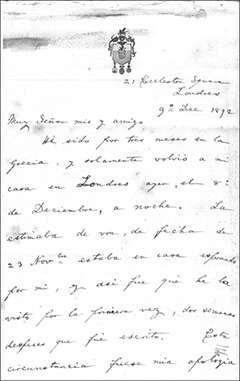 21 Eccleston Square
Londres
9º Dec 1892
Muy Señor mio y amigo
He sido por tres meses en la
Grecia, y solamente volvió a mi
casa en Londres ayer, el 8º
de Deciembre, a noche. La
estimaba de von, de fecha de
23 Novre estaba en casa
por mi, y asi fue que he la
visto por la primera vez, dos semanas
despues que fué escrito. Esta
circunstancia fuese mia apologia